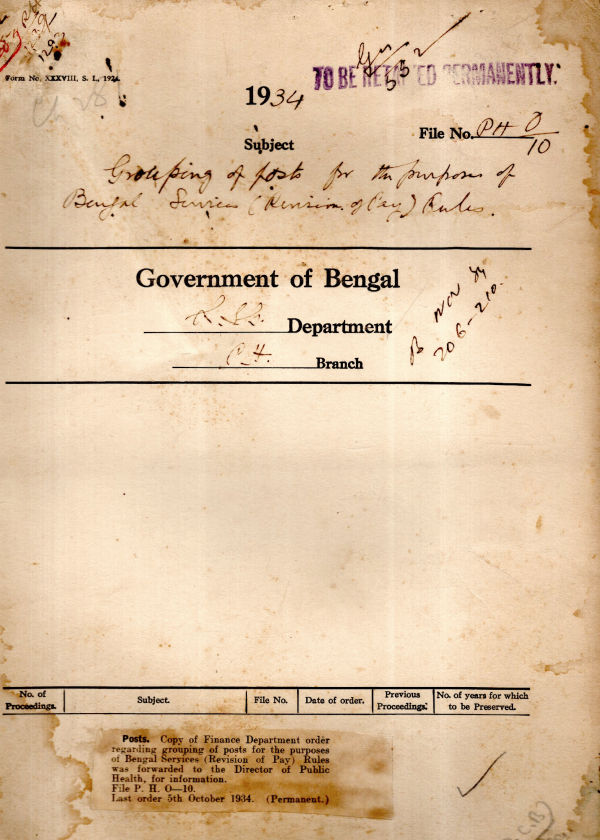 Form No. XXXVIII, S. I., 192
TO BE RETAINED PERMANENTLY.
532
1934
File No. PH O/10
Subject
Grouping of posts for the purposes of
Bengal Services (Revision of Pay) Rules.
Government of Bengal
Department
Branch
B Nov 34
206-210.
No. of Proceedings.
Subject.
File No.
Date of order.
Previous Proceedings.
No. of years for which to be Preserved.
Posts. Copy of Finance Department order
regarding grouping of posts for the purposes
of Bengal Services (Revision of Pay) Rules
was forwarded to the Director of Public
Health, for information.
File P. H. O—10.
Last order 5th October 1934. (Permanent.)